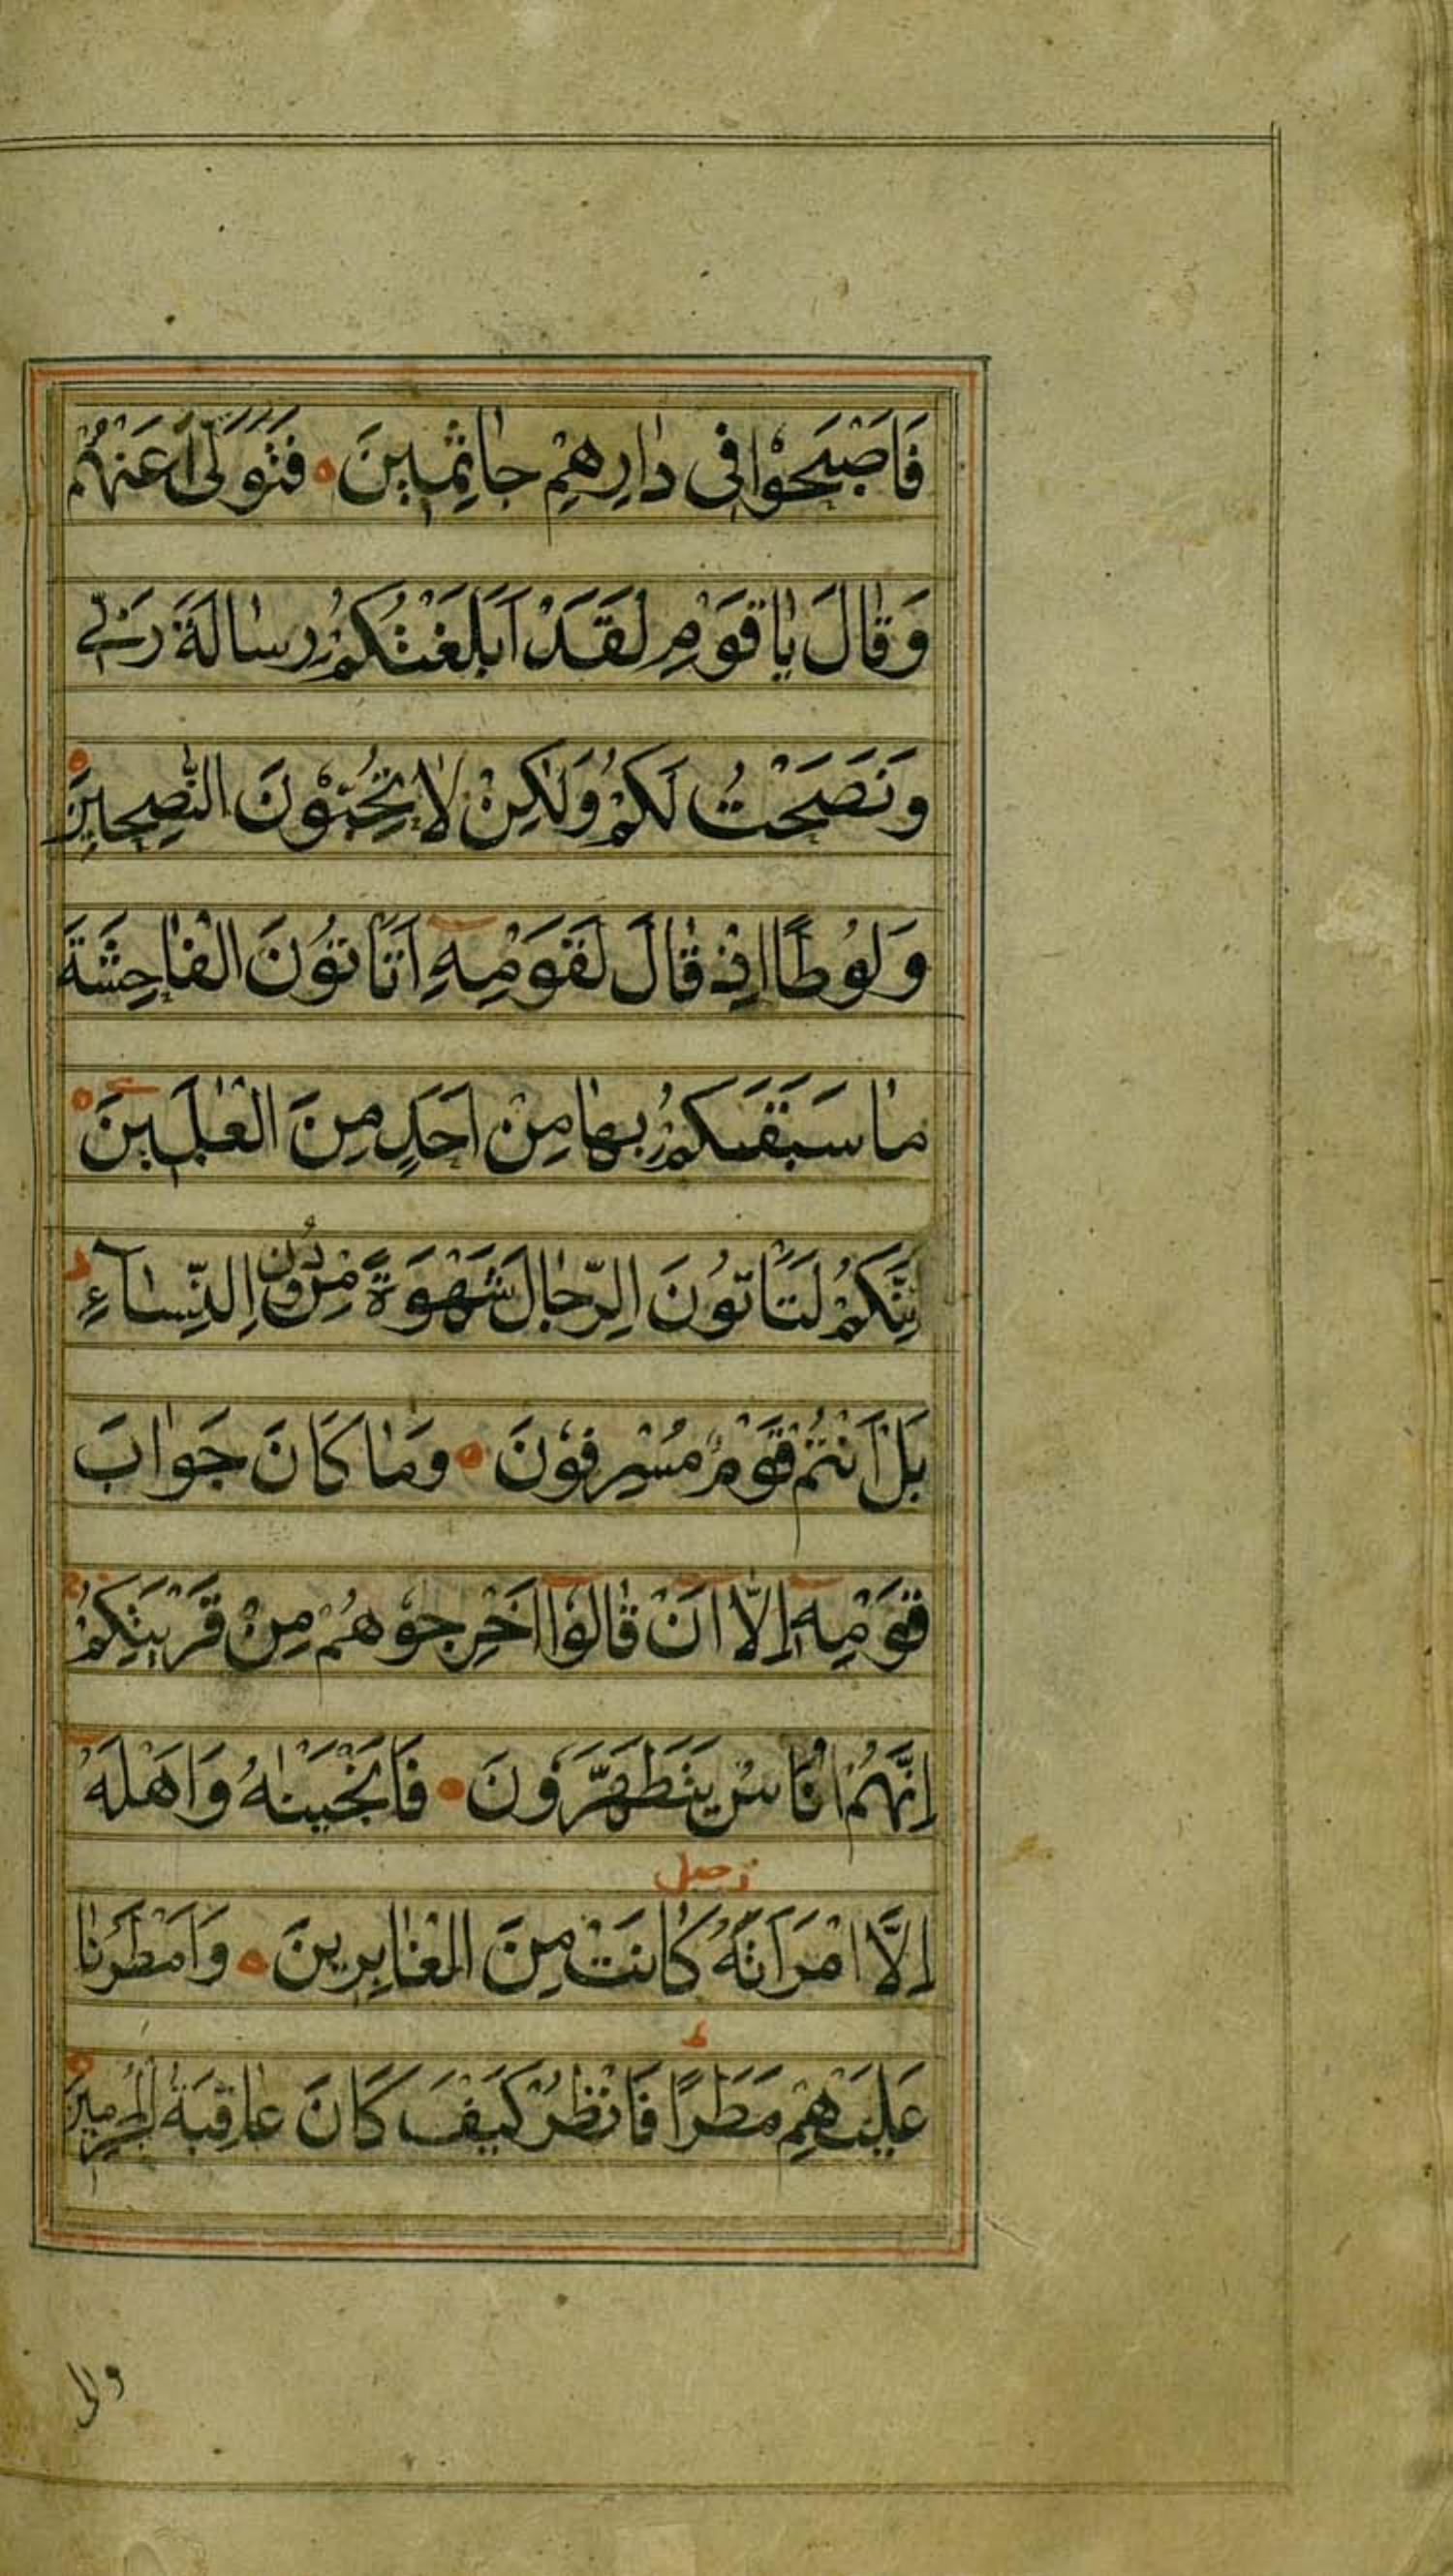 فَاَصْبَحُوْا فى دٰارِهِمْ جٰاثِمٖينَ ۰ فَتَوَلّٰى عَنْهُمْ
وَقٰالَ يٰا قَوْمِ لَقَدْ اَبْلَغْتُكُمْ رِسٰالَةَ رَبّٖى
وَنَصَحْتُ لَكُمْ وَلٰكِنْ لٰا تُحِبُّوْنَ النّٰصِحٖينَ ۰
وَلُوْطًا اِذْ قٰالَ لِقَوْمِهِ اَتَاْتُوْنَ الْفٰاحِشَةَ
مٰا سَبَقَكُمْ بِهٰا مِنْ اَحَدٍ مِنَ الْعٰلَمٖينَ ۰
اِنَّكُمْ لَتَاْتُوْنَ الرِّجٰالَ شَهْوَةً مِنْ دُوْنِ النِّسٰآءِ ط
بَلْ اَنْتُمْ قَوْمٌ مُسْرِفُوْنَ ۰ وَمٰا كَانَ جَوٰابَ
قَوْمِهٖ اِلَّا اَنْ قٰالُوْا اَخْرِجُوْهُمْ مِنْ قَرْيَتِكُمْ ج
اِنَّهُمْ اُنَاسٌ يَتَطَهَّرُوْنَ ۰ فَاَنْجَيْنٰاهُ وَاَهْلَهُ
زصل
اِلَّا امْرَاَتَهُ كٰانَتْ مِنَ الْغٰابِرِينَ ۰ وَاَمْطَرْنٰا
ط
عَلَيْهِمْ مَطَرًا فَانْظُرْ كَيْفَ كَانَ عٰاقِبَةُ الْمُجْرِمٖينَ ۰
والى